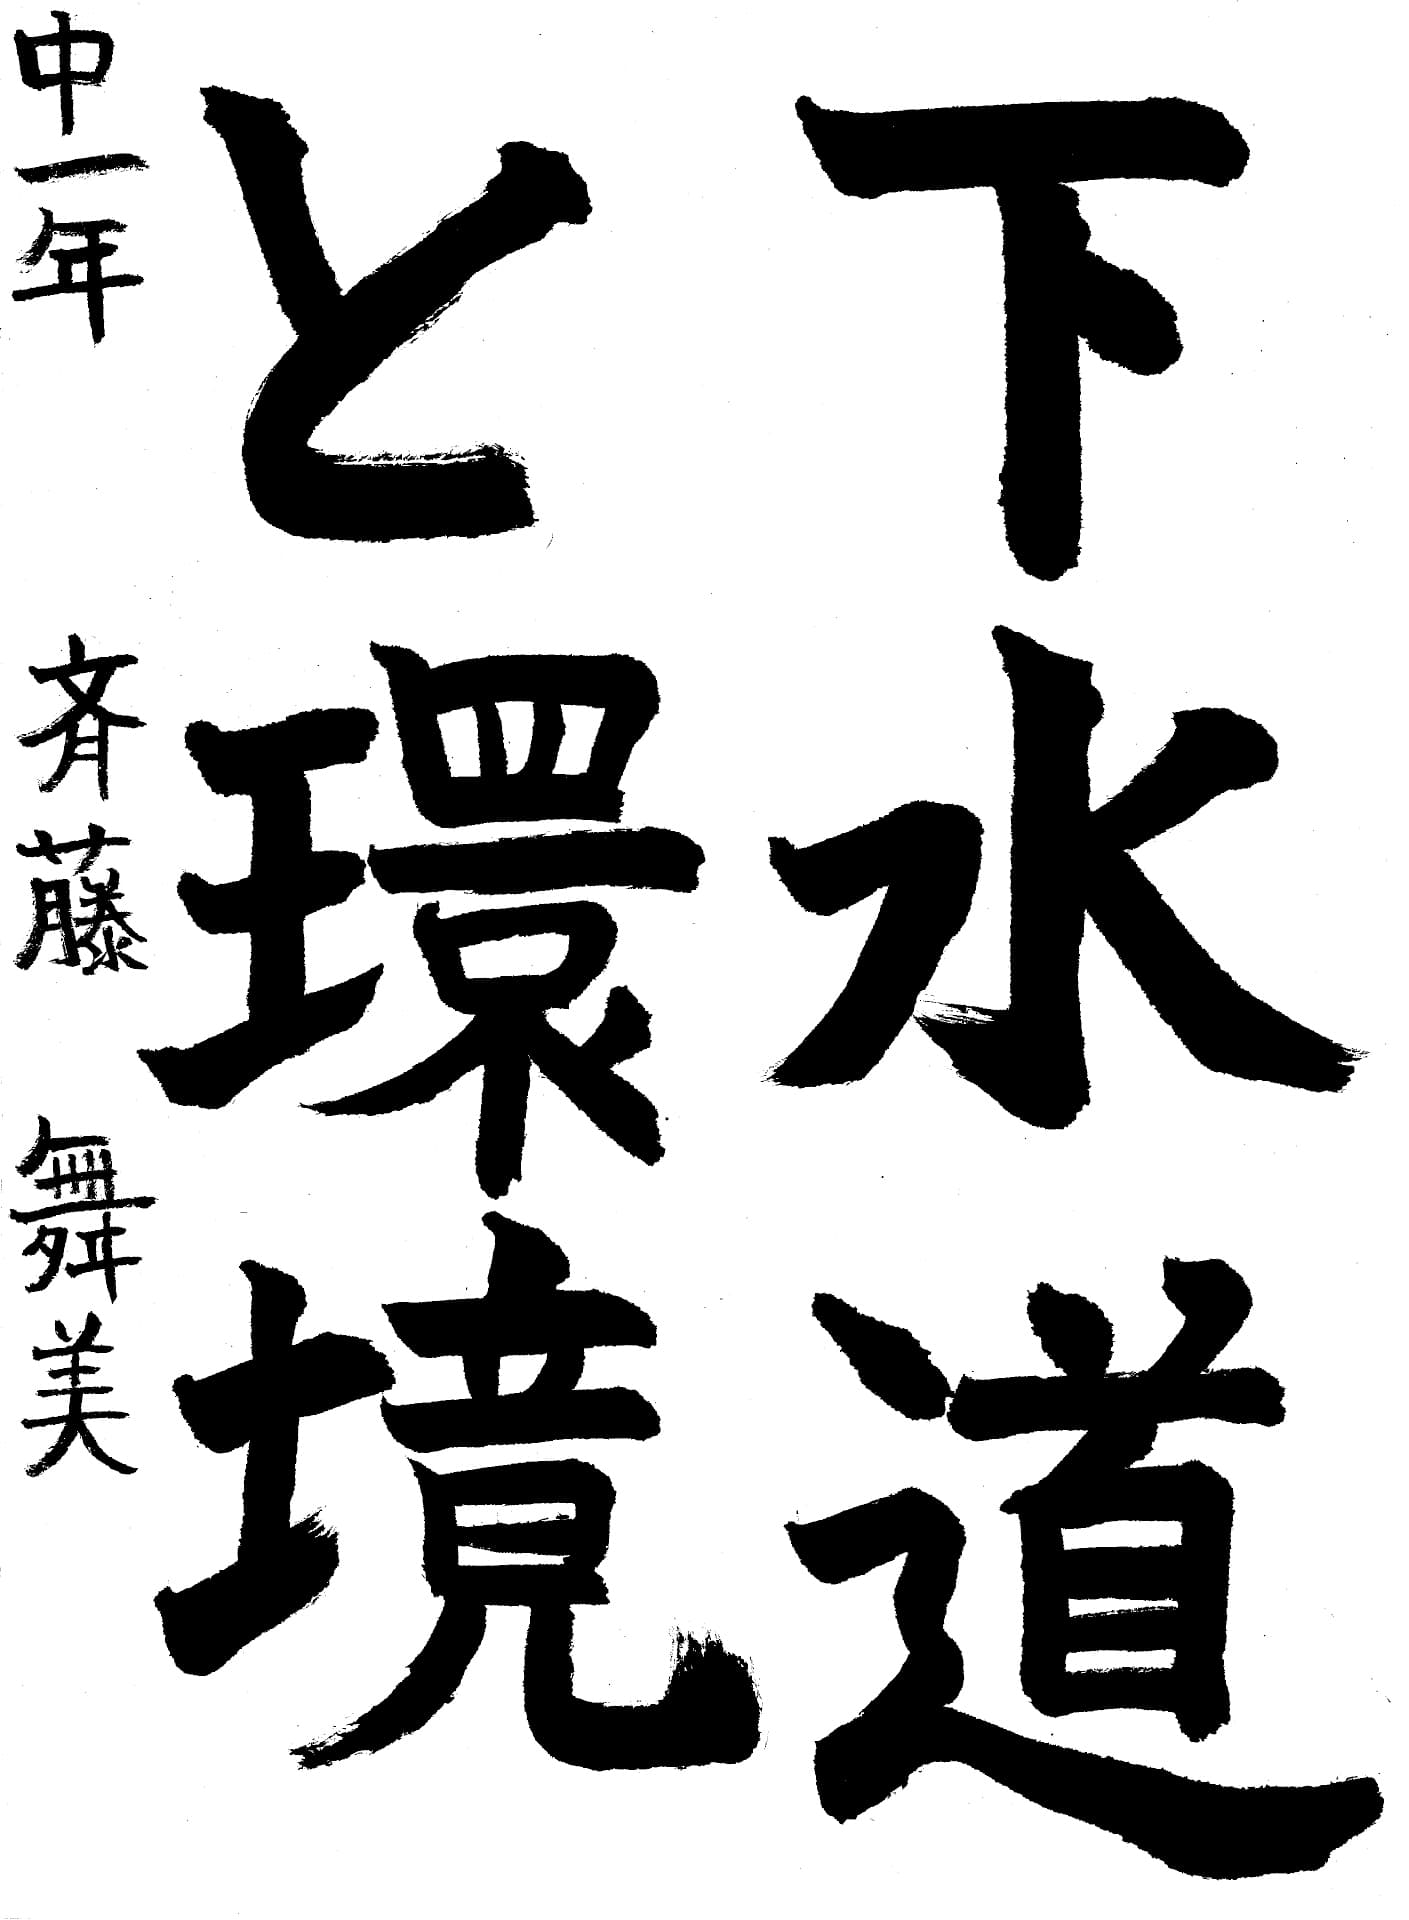 下水道
と環境
中一年 斉藤 舞美